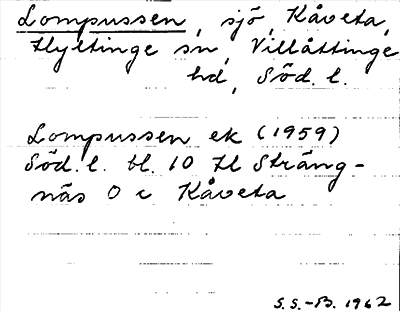 Lompussen, sjö, Kåveta,
Hyltinge sn, Villåttinge
hd, Söd. l.
Lompussen ek (1959)
Söd. l. bl. 10 Il Sträng-
näs O c Kåveta
S.S.-B. 1962